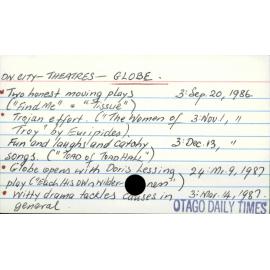 DN CITY - THEATRES - GLOBE.
Two honest moving plays 3: Sep. 20, 1986
("Find Me" + "Tissue")
Trojan effort. ("The Women of 3: Nov 1, "
Troy" by Euripides).
Fun and laughs and catchy 3: Dec. 13, "
songs. ("TOAD of TOAD HALL")
Globe opens with Doris Lessing 24: Mr. 9, 1987
play ("Each His Own Wilderness")
Witty drama tackles causes in 3: Mar. 14, 1987.
general.
OTAGO DAILY TIMES